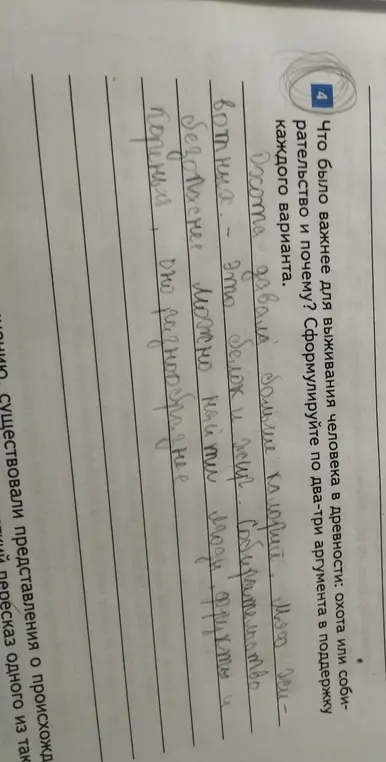 4 Что было важнее для выживания человека в древности: охота или соби-
рательство и почему? Сформулируйте по два-три аргумента в поддержку
каждого варианта.
Охота давала больше калорий, мясо жи-
вотных - это белок и жир. Собирательство
безопаснее можно найти ягоды, фрукты и
коренья, оно разнообразнее
существовали представления о происхожд
пересказ одного из так